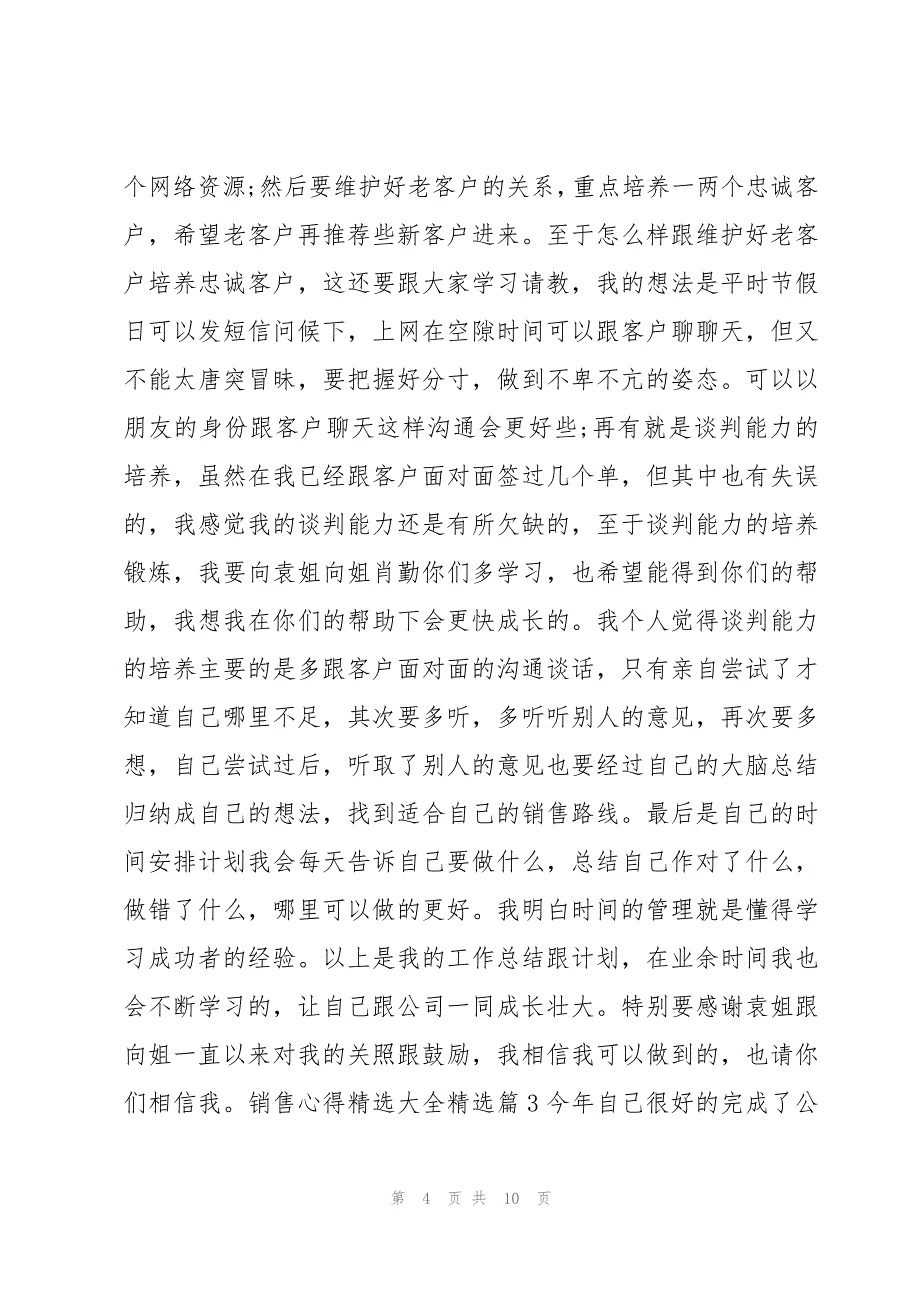 个网络资源;然后要维护好老客户的关系，重点培养一两个忠诚客
户，希望老客户再推荐些新客户进来。至于怎么样跟维护好老客
户培养忠诚客户，这还要跟大家学习请教，我的想法是平时节假
日可以发短信问候下，上网在空隙时间可以跟客户聊聊天，但又
不能太唐突冒昧，要把握好分寸，做到不卑不亢的姿态。可以以
朋友的身份跟客户聊天这样沟通会更好些;再有就是谈判能力的
培养，虽然在我已经跟客户面对面签过几个单，但其中也有失误
的，我感觉我的谈判能力还是有所欠缺的，至于谈判能力的培养
锻炼，我要向袁姐向姐肖勤你们多学习，也希望能得到你们的帮
助，我想我在你们的帮助下会更快成长的。我个人觉得谈判能力
的培养主要的是多跟客户面对面的沟通谈话，只有亲自尝试了才
知道自己哪里不足，其次要多听，多听听别人的意见，再次要多
想，自己尝试过后，听取了别人的意见也要经过自己的大脑总结
归纳成自己的想法，找到适合自己的销售路线。最后是自己的时
间安排计划我会每天告诉自己要做什么，总结自己作对了什么，
做错了什么，哪里可以做的更好。我明白时间的管理就是懂得学
习成功者的经验。以上是我的工作总结跟计划，在业余时间我也
会不断学习的，让自己跟公司一同成长壮大。特别要感谢袁姐跟
向姐一直以来对我的关照跟鼓励，我相信我可以做到的，也请你
们相信我。销售心得精选大全精选篇3今年自己很好的完成了公
第 4 页 共 10 页